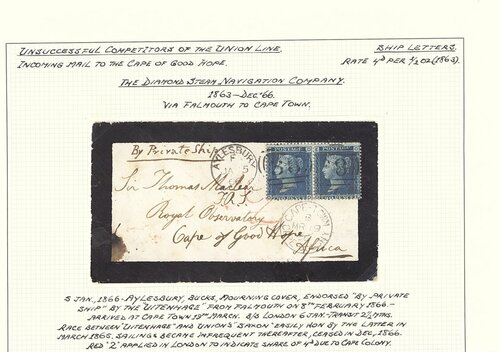 UNSUCCESSFUL COMPETITORS OF THE UNION LINE.
SHIP LETTERS
INCOMING MAIL TO THE CAPE OF GOOD HOPE.
RATE 4d PER ½ OZ (1863).
THE DIAMOND STEAM NAVIGATION COMPANY.
1863-DEC '66.
VIA FALMOUTH TO CAPE TOWN.
By Private Ship
AYLESBURY
Sir Thomas Maclear
Royal Observatory
Cape of Good Hope
Africa
5 JAN., 1866-AYLESBURY, BUCKS, MOURNING COVER, ENDORSED "BY PRIVATE
SHIP" BY THE "UITENHAGE" FROM FALMOUTH ON 8TH FEBRUARY 1866-
ARRIVED AT CAPE TOWN 19TH MARCH. B/S LONDON 6 JAN. TRANSIT
RACE BETWEEN "UITENHAGE" AND UNION'S "SAXON" EASILY WON BY THE LATTER IN
MARCH 1865. SAILINGS BECAME INFREQUENT THEREAFTER, CEASED IN DEC, 1866.
RED "2" APPLIED IN LONDON TO INDICATE SHARE OF 4d DUE TO CAPE COLONY.